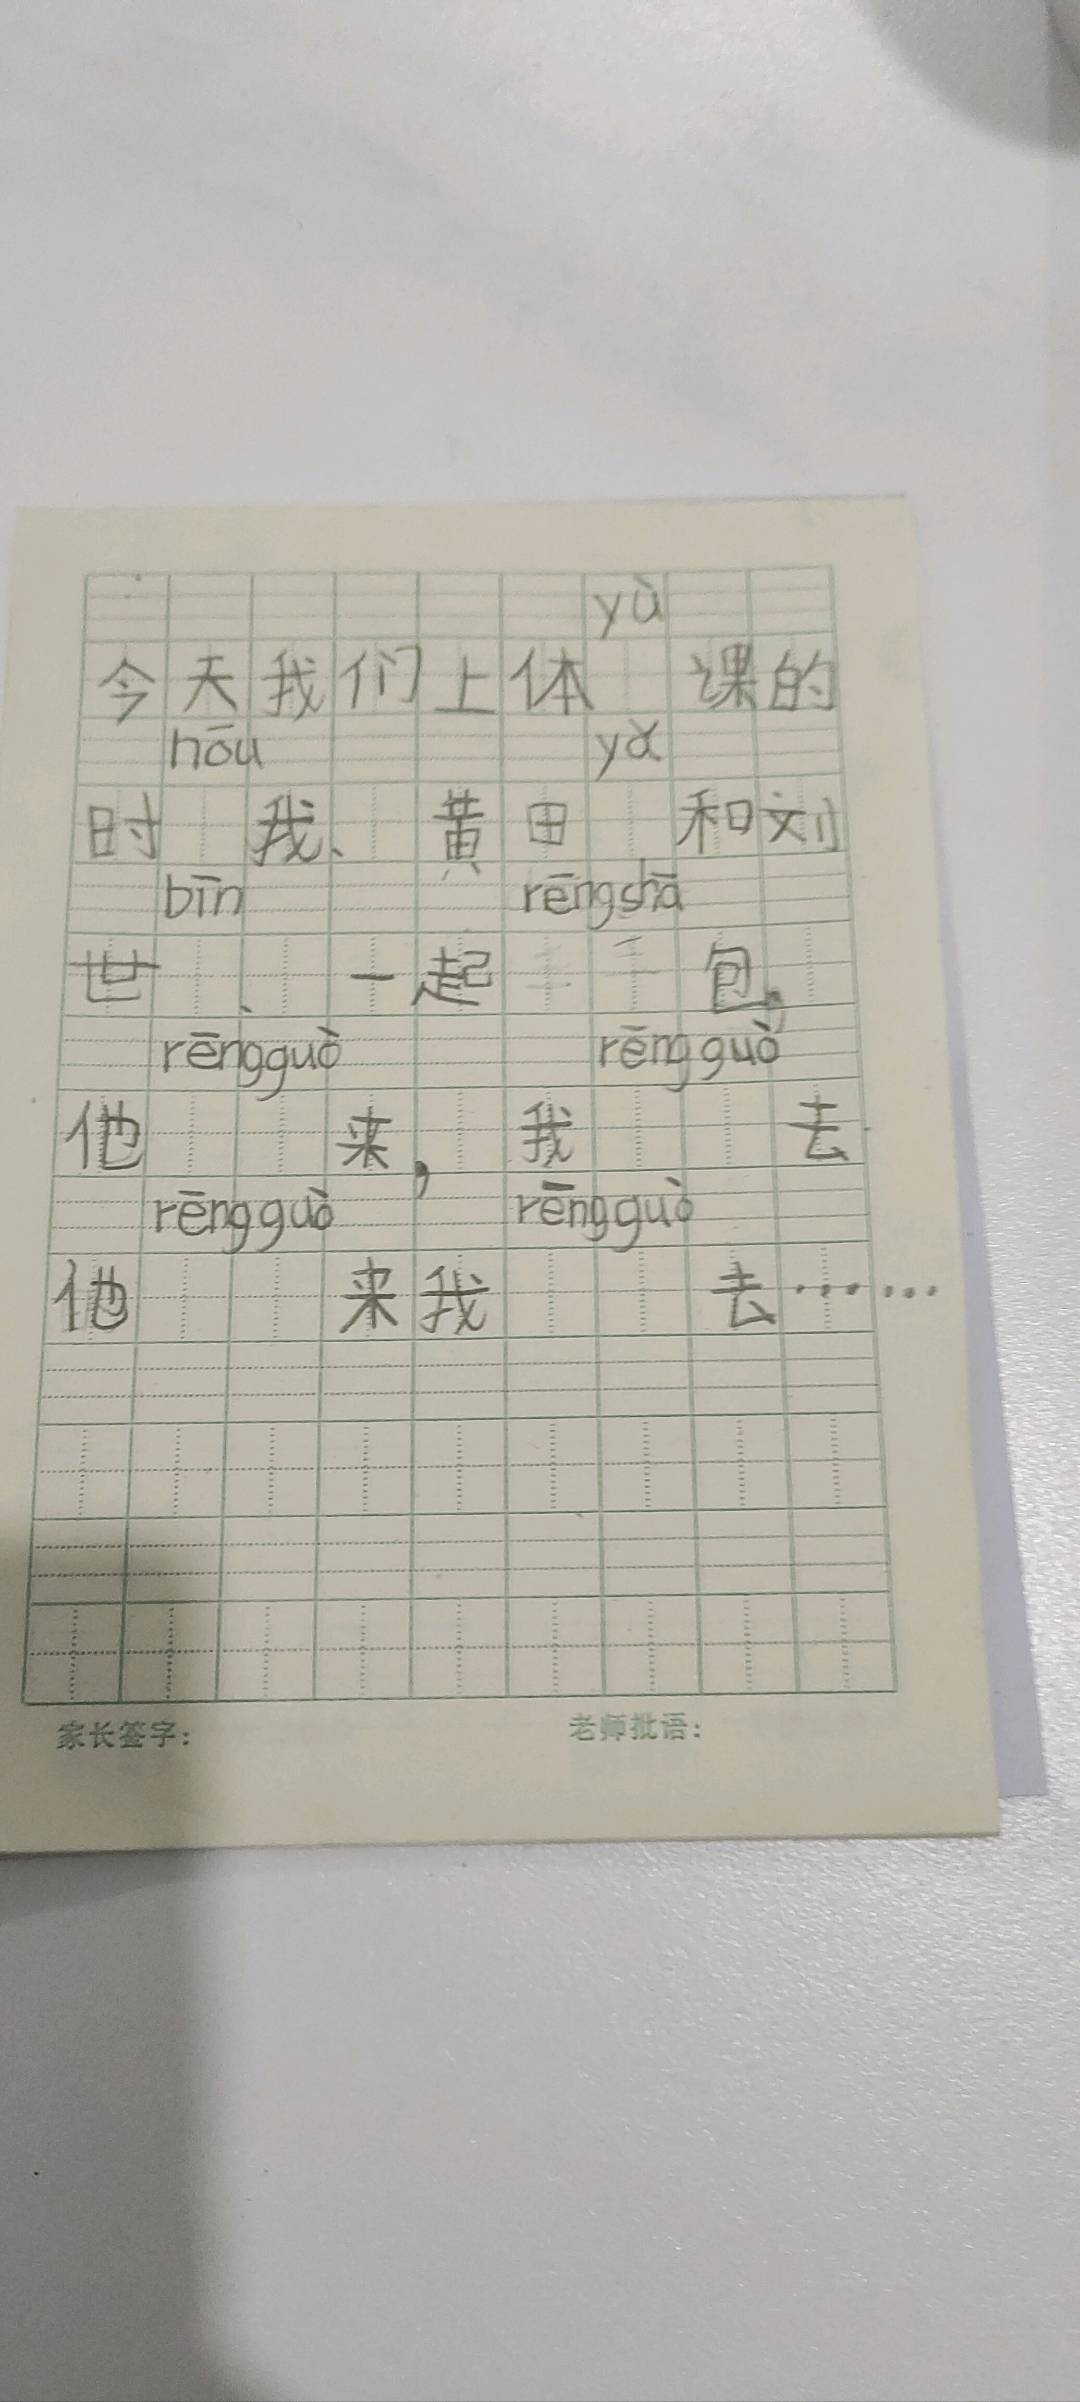 yù
今天我们上体 课的
hōu yǎ
时 我、 黄田 和刘
bīn rēngshā
世 、 一起 包，
rēngguò rēngguò
他 来， 我 去
rēngguò rēngguò
他 来我 去……
家长签字： 老师批语：